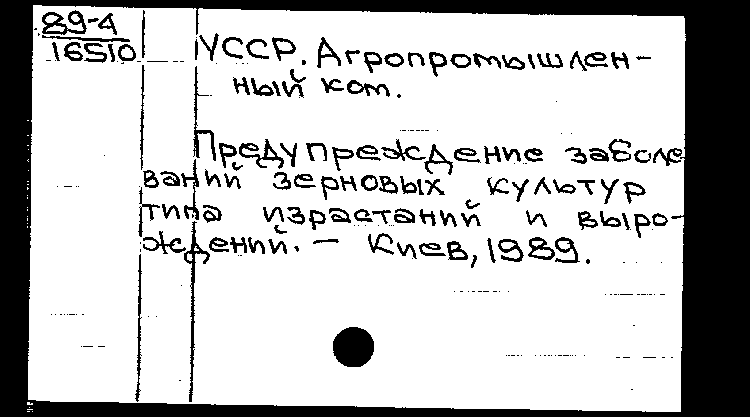 89-4
16510
УССР. Агропромышлен-
ный ком.
Предупреждение заболе
ваний зерновых культур
типа израстаний и выро-
ждений. — Киев, 1989.